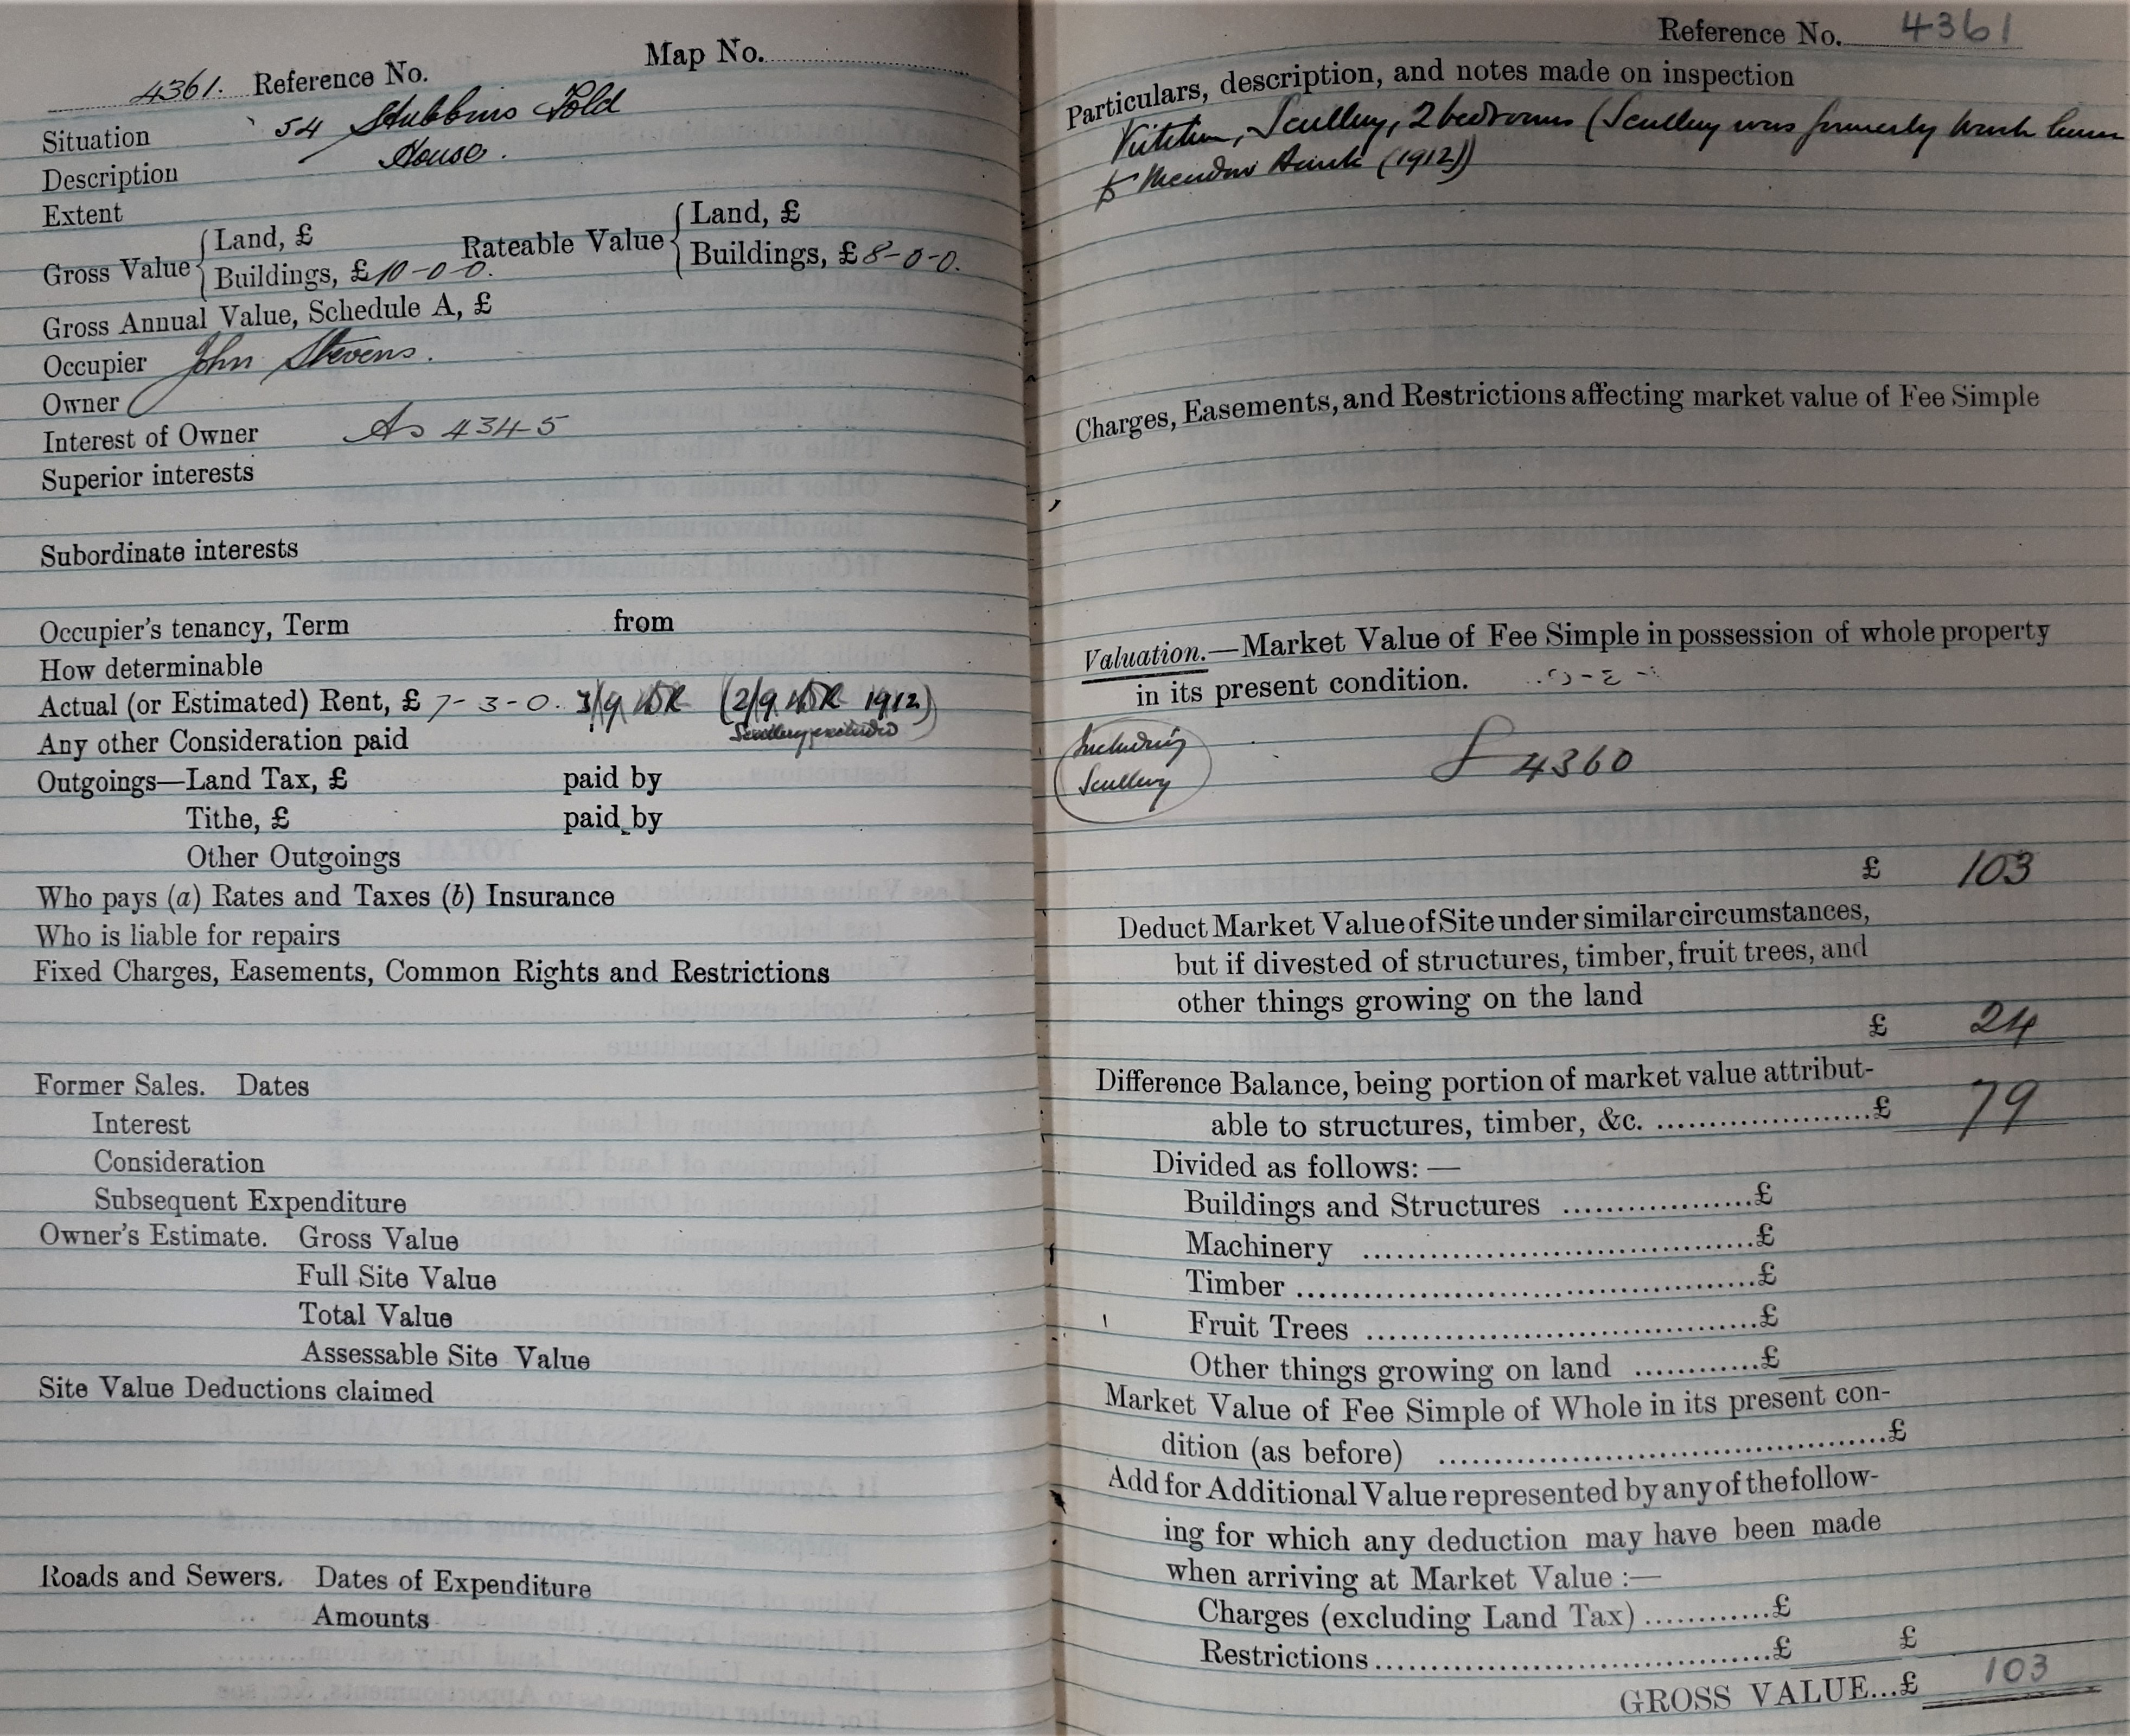 4361. Reference No. Map No.
Situation 54 Stubbins Fold
Description House.
Extent
Gross Value { Land, £ Rateable Value { Land, £
Buildings, £ 10-0-0. Buildings, £ 8-0-0.
Gross Annual Value, Schedule A, £
Occupier John Stevens.
Owner
Interest of Owner As 4345
Superior interests
Subordinate interests
Occupier's tenancy, Term from
How determinable
Actual (or Estimated) Rent, £ 7-3-0. 3/9 (2/9 1912)
Scullery excluded
Any other Consideration paid
Outgoings—Land Tax, £ paid by
Tithe, £ paid by
Other Outgoings
Who pays (a) Rates and Taxes (b) Insurance
Who is liable for repairs
Fixed Charges, Easements, Common Rights and Restrictions
Former Sales. Dates
Interest
Consideration
Subsequent Expenditure
Owner's Estimate. Gross Value
Full Site Value
Total Value
Assessable Site Value
Site Value Deductions claimed
Roads and Sewers. Dates of Expenditure
Amounts
Reference No. 4361
Particulars, description, and notes made on inspection
Kitchen, Scullery, 2 bedrooms (Scullery was formerly Wash house
to Meadow Bank (1912))
Charges, Easements, and Restrictions affecting market value of Fee Simple
Valuation.—Market Value of Fee Simple in possession of whole property
in its present condition.
Including
Scullery
4360
£ 103
Deduct Market Value of Site under similar circumstances,
but if divested of structures, timber, fruit trees, and
other things growing on the land
£ 24
Difference Balance, being portion of market value attribut-
able to structures, timber, &c. ......................£ 79
Divided as follows: —
Buildings and Structures ..................£
Machinery ......................................£
Timber .............................................£
Fruit Trees ......................................£
Other things growing on land ............£
Market Value of Fee Simple of Whole in its present con-
dition (as before) ............................................£
Add for Additional Value represented by any of the follow-
ing for which any deduction may have been made
when arriving at Market Value :—
Charges (excluding Land Tax) ............£
Restrictions.......................................£ £
GROSS VALUE...£ 103